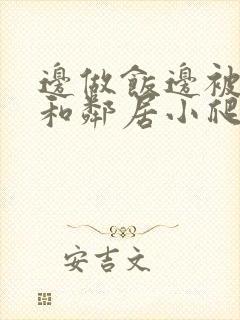 邊做飯邊被
和鄰居小爬
安吉文